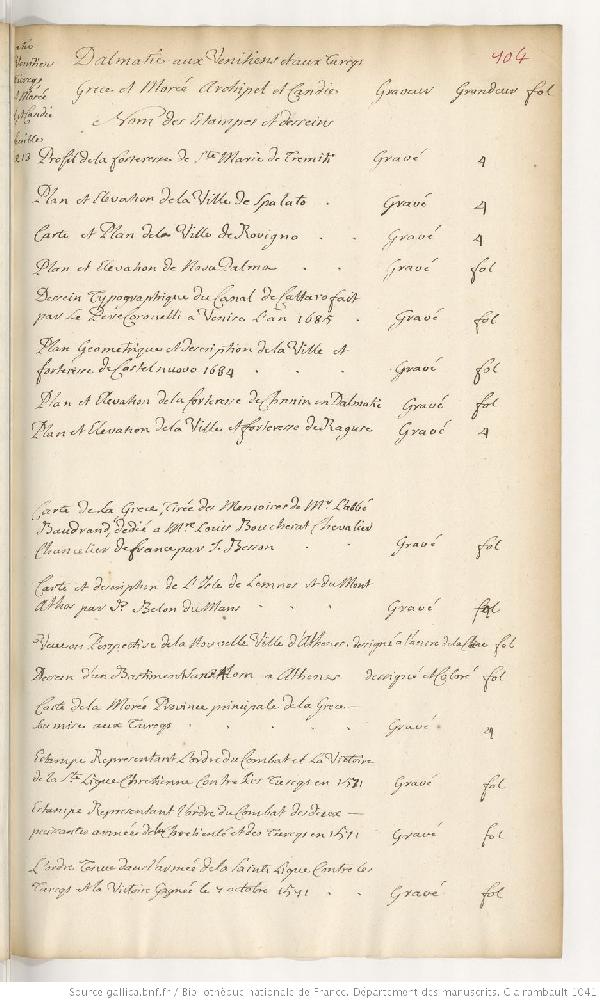 Dalmatie aux Venitiens et aux Turcqs 104
Grece et Morée Archipel et Candie Graveurs Grandeurs fol
Nom des Estampes et desseins
Profil de la forteresse de Ste Marie de Tremiti Gravé 4
Plan et Elevation de la Ville de Spalato Gravé 4
Carte et Plan de la Ville de Rovigno Gravé 4
Plan et Elevation de Nova Dalma Gravé fol
Dessein Typographique du Canal de Cattaro fait
par Le Pere Coronelli a Venise L'an 1685 Gravé fol
Plan Geometrique et description de la Ville et
forteresse de Castel nuovo 1684 Gravé fol
Plan et Elevation de la forteresse de Chnnin en Dalmatie Gravé fol
Plan et Elevation de la Ville et forteresse de Raguse Gravé 4
Carte de la Grece, Tirée des Memoires de Mr L'abbé
Baudrand, dedié a Mre Louis Boucherat Chevalier
Chancelier de france par J. Besson Gravé fol
Carte et description de L'Isle de Lemnos et du Mont
Athos par P. Belon du Mans Gravé fol
Veue en Perspective de la Nouvelle Ville d'Athenes designé a l'ancre de la Chine fol
Dessein d'un Bastiment a Athenes designé et Coloré fol
Carte de la Morée Province principale de la Grece
soumise aux Turcqs Gravé 4
Estampe Representant L'ordre du Combat et La Victoire
de la Ste Ligue Chretienne Contre Les Turcqs en 1571 Gravé fol
Estampe Representant l'ordre du Combat des deux
puissantes armées de la Chretienté et des Turcqs en 1571 Gravé fol
L'ordre Tenue dans l'armée de la Sainte Ligue Contre les
Turcqs et la Victoire Gagnée le 7 octobre 1571 Gravé fol
Source gallica.bnf.fr / Bibliothèque nationale de France. Département des manuscrits. Clairambault 1041